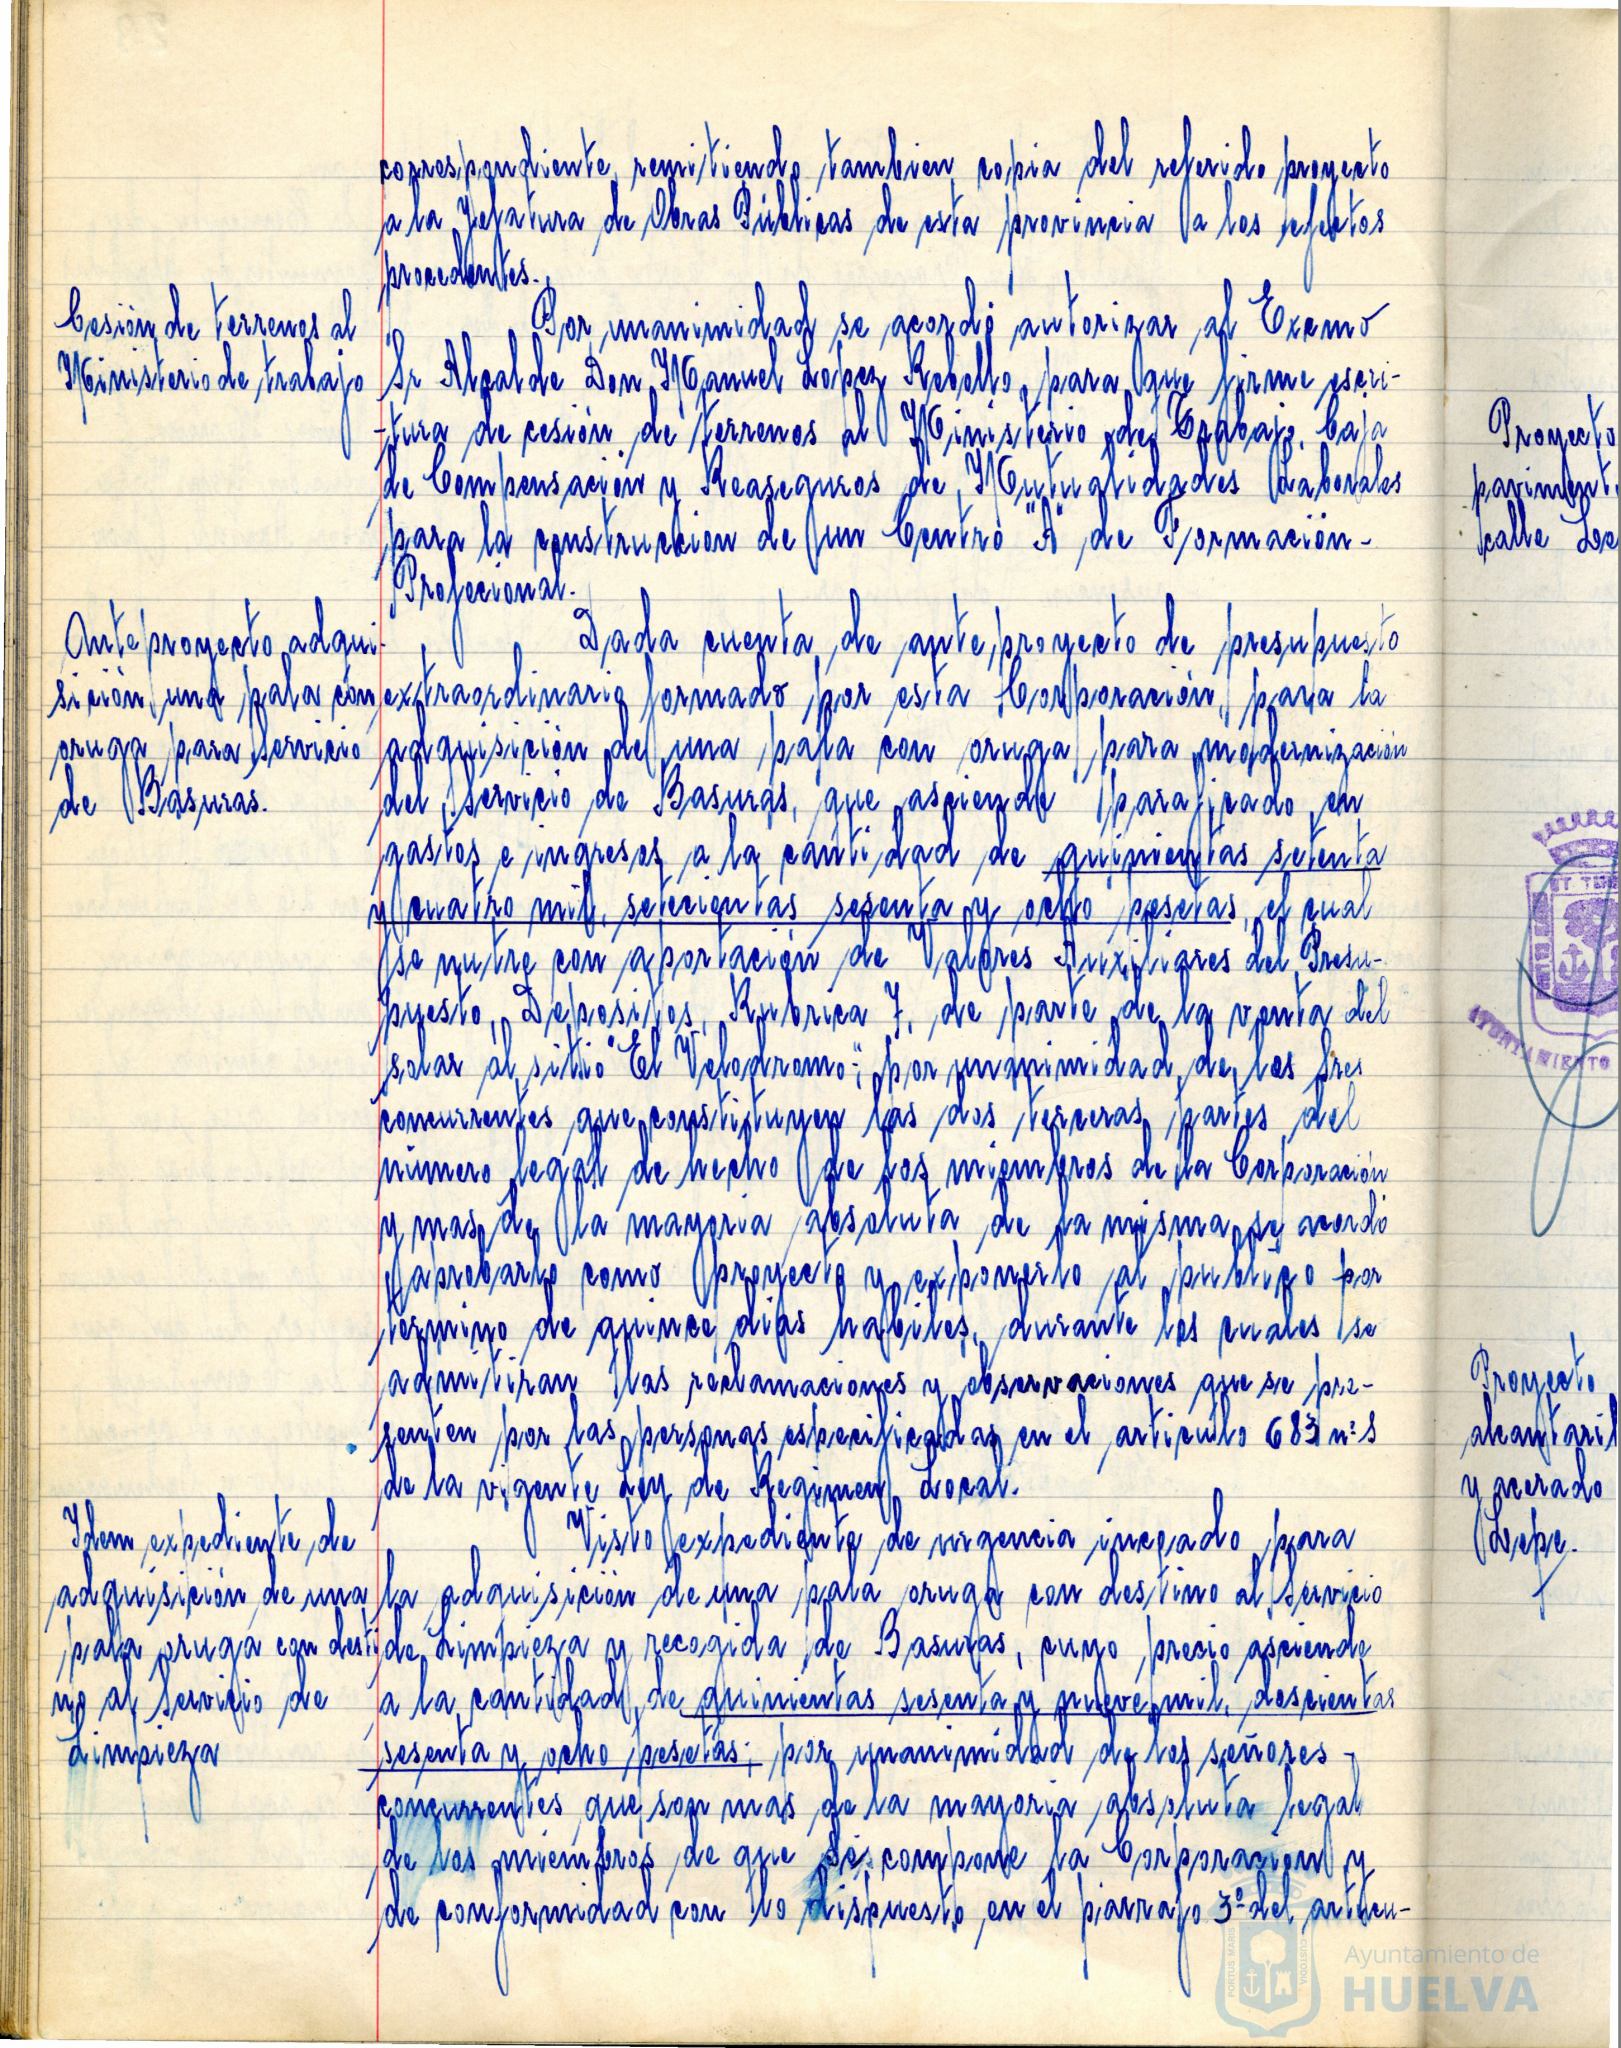 correspondiente, remitiendo tambien copia del referido proyecto
a la Jefatura de Obras Públicas de esta provincia a los efectos
procedentes.
Cesión de terrenos al
Ministerio de trabajo
Por unanimidad se acordó autorizar al Excmo
Sr Alcalde Don Manuel López Rebollo, para que firme escri-
tura de cesión de terrenos al Ministerio de Trabajo, Caja
de Compensación y Reaseguros de Mutualidades Laborales
para la construccion de un Centro "A" de Formación-
Profecional.
Anteproyecto adqui-
sición una pala con
oruga para servicio
de Basuras.
Dada cuenta de anteproyecto de presupuesto
extraordinario formado por esta Corporación, para la
adquisición de una pala con oruga para modernización
del Servicio de Basuras, que asciende parificado en
gastos e ingresos a la cantidad de quinientas setenta
y cuatro mil, setecientas sesenta y ocho pesetas, el cual
se nutre con aportación de Valores Auxiliares del Presu-
puesto, Depositos, Rubrica 7, de parte de la venta del
solar al sitio "El Velodromo"; por unanimidad de los Sres
concurrentes que constituyen las dos terceras partes del
número legal de hecho de los miembros de la Corporación
y mas de la mayoria absoluta de la misma se acordó
aprobarlo como proyecto y exponerlo al publico por
termino de quince dias habiles, durante los cuales se
admitiran las reclamaciones y observaciones que se pre-
senten por las personas especificadas en el articulo 683 nº S
de la vigente Ley de Regimen Local.
Idem expediente de
adquisición de una
pala oruga con desti
no al Servicio de
Limpieza
Visto expediente de urgencia incoado para
la adquisición de una pala oruga con destino al Servicio
de Limpieza y recogida de Basuras, cuyo precio asciende
a la cantidad de quinientas sesenta y nueve mil, doscientas
sesenta y ocho pesetas; por unanimidad de los señores-
concurrentes que son mas de la mayoria absoluta legal
de los miembros de que se compone la Corporación y
de conformidad con lo dispuesto en el parrafo 3º del articu-
Proyecto
paviment.
calle
AYUNTAMIENTO
Proyecto
alcantaril
y acerado
Lepe.
PORTUS MARIS
CUSTODIA
Ayuntamiento de
HUELVA